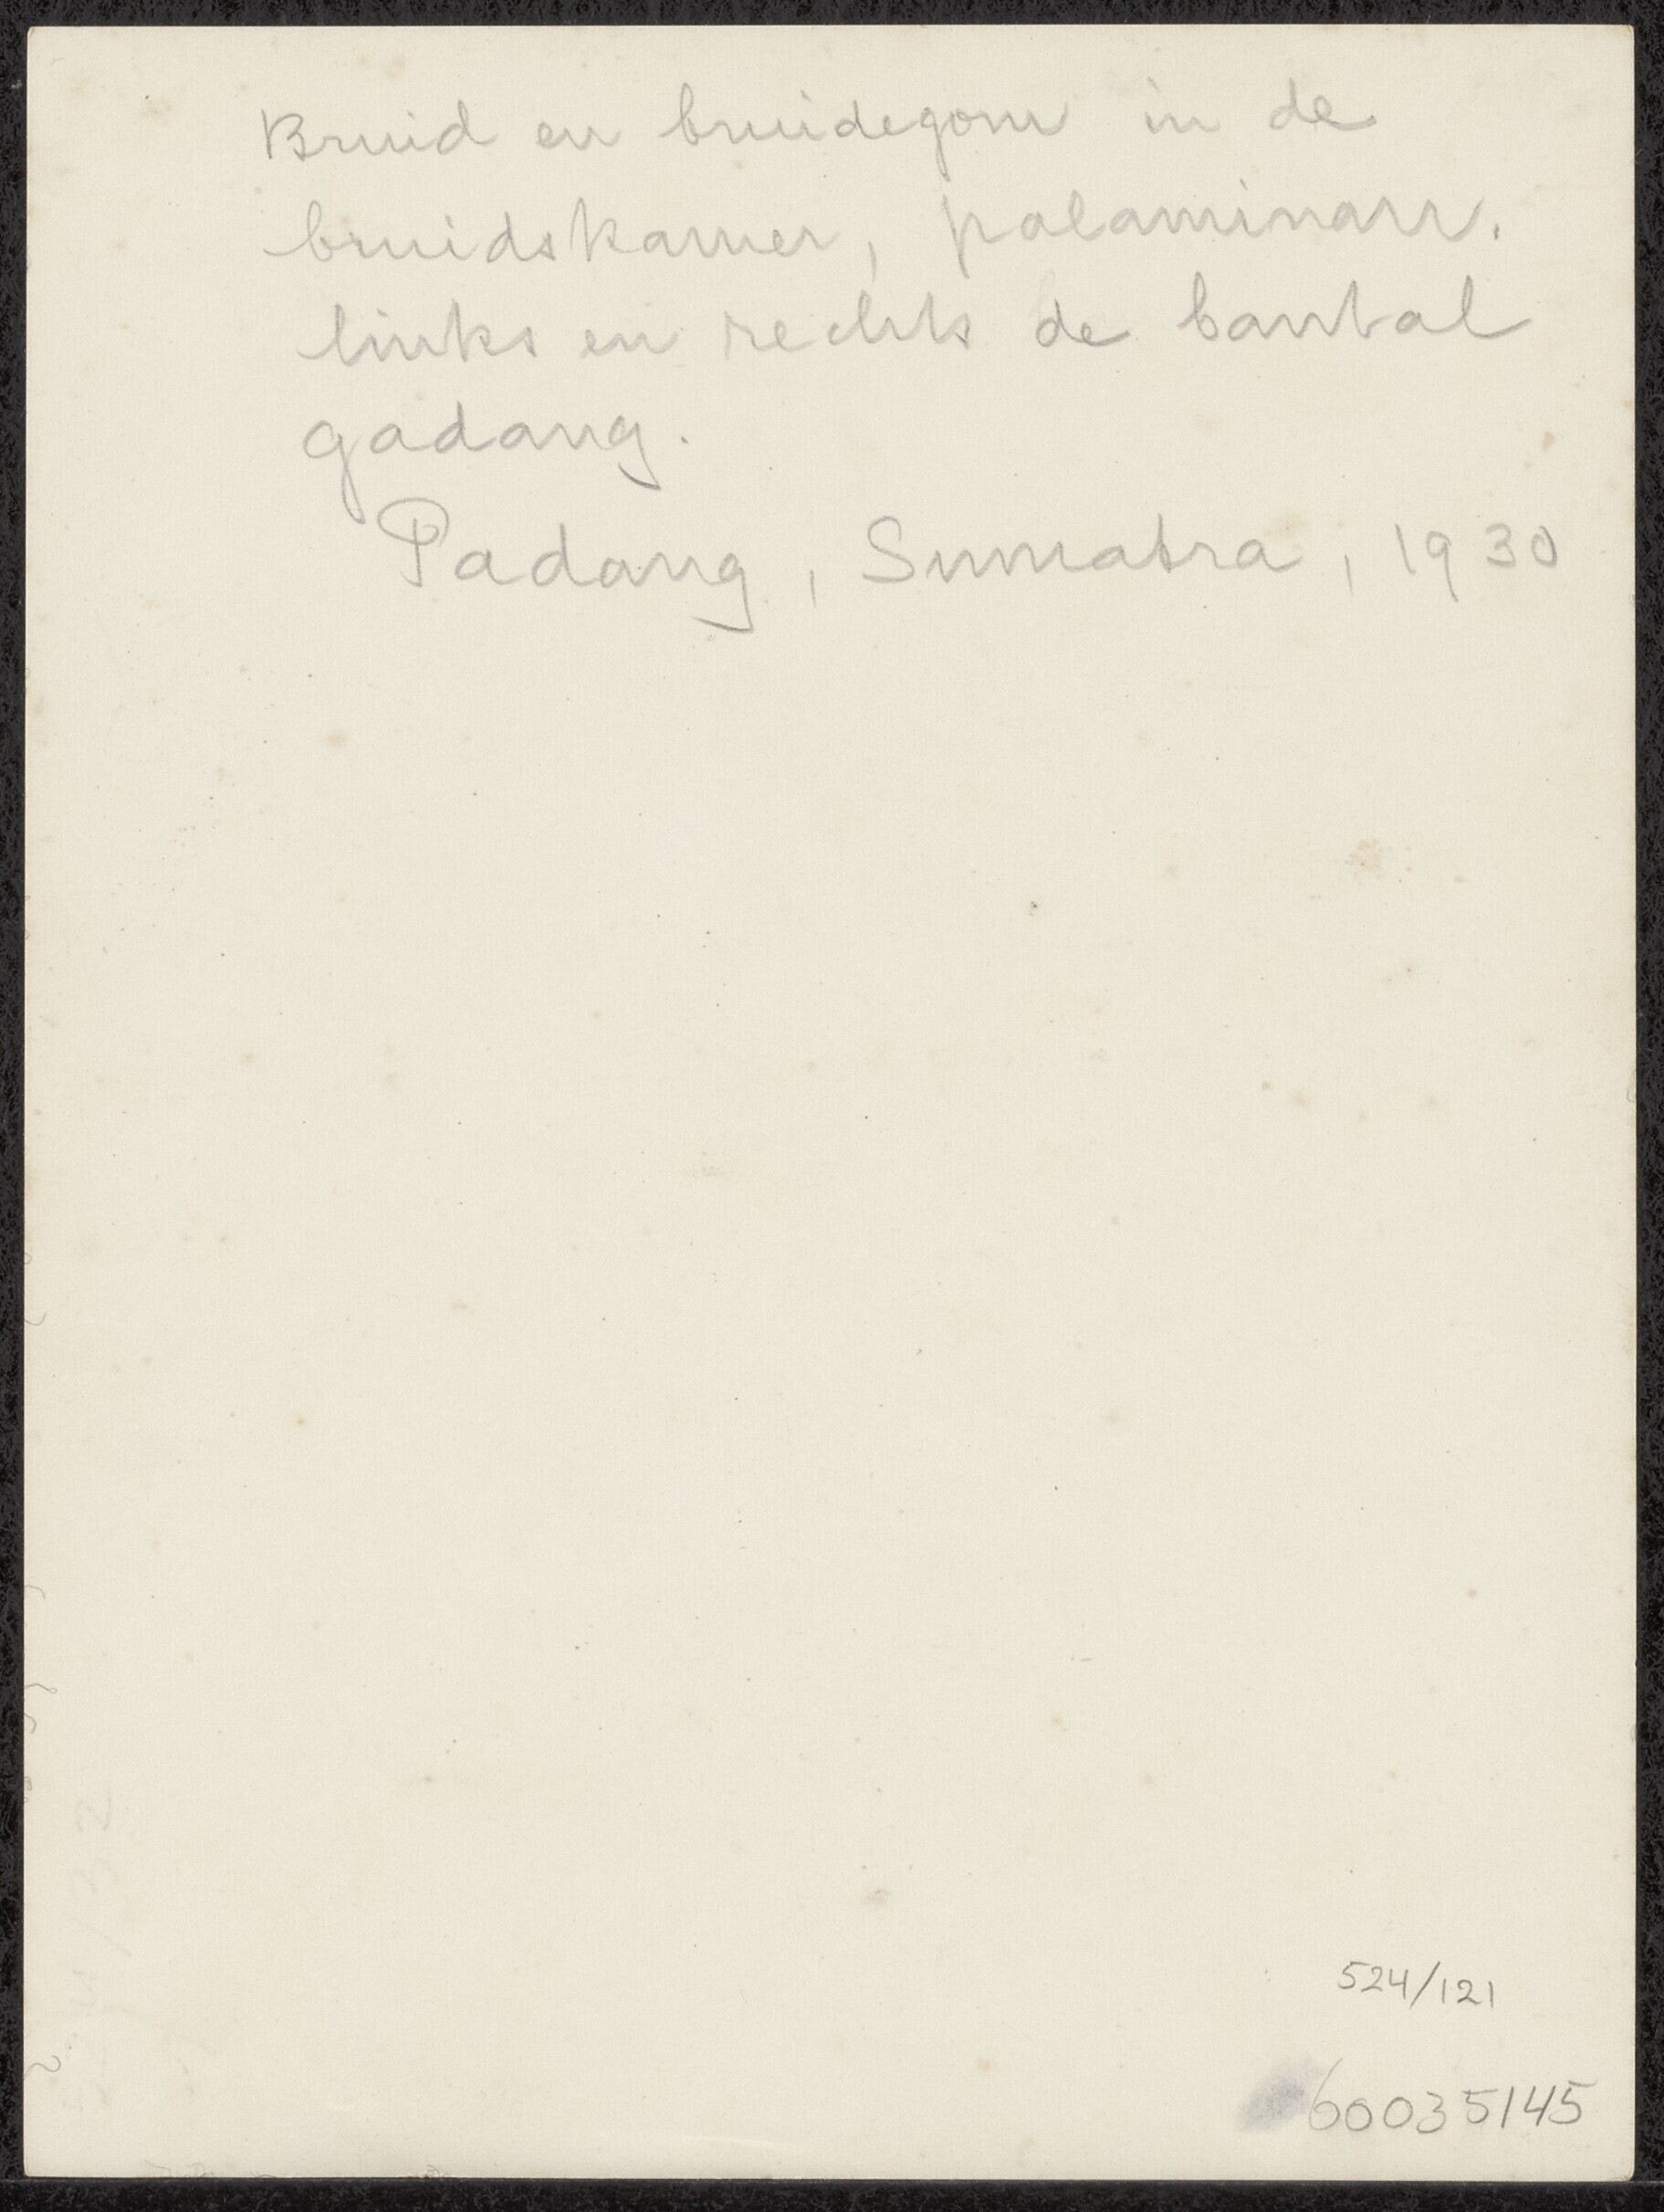 Bruid en bruidegom in de
bruidskamer, palaminan.
links en rechts de bantal
gadang.
Padang, Sumatra, 1930
524/121
60035145